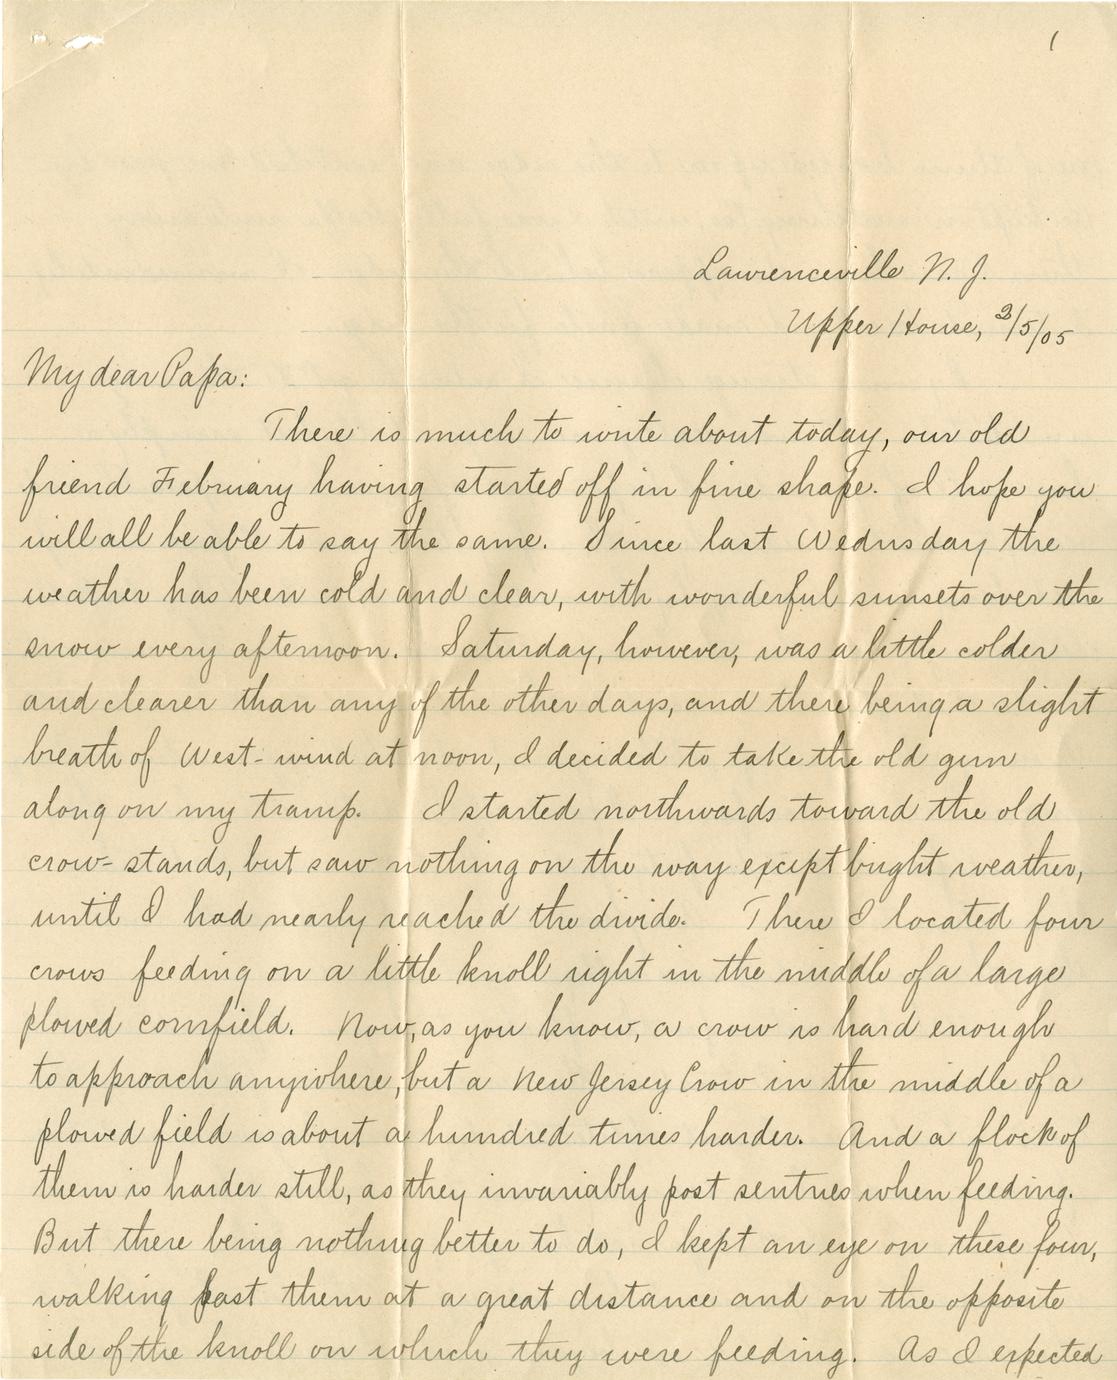 1
Lawrenceville N. J.
Upper House, 2/5/05
My dear Papa:
There is much to write about today, our old
friend February having started off in fine shape. I hope you
will all be able to say the same. Since last Wednsday the
weather has been cold and clear, with wonderful sunsets over the
snow every afternoon. Saturday, however, was a little colder
and clearer than any of the other days, and there being a slight
breath of West-wind at noon, I decided to take the old gun
along on my tramp. I started northwards toward the old
crow-stands, but saw nothing on the way except bright weather,
until I had nearly reached the divide. There I located four
crows feeding on a little knoll right in the middle of a large
plowed cornfield. Now, as you know, a crow is hard enough
to approach anywhere, but a New Jersey Crow in the middle of a
plowed field is about a hundred times harder. And a flock of
them is harder still, as they invariably post sentries when feeding.
But there being nothing better to do, I kept an eye on these four,
walking past them at a great distance and on the opposite
side of the knoll on which they were feeding. As I expected